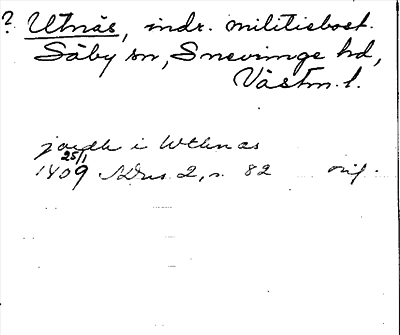 ? Utnäs, indr. militiebost.
Säby sn, Snevringe hd,
Västm. l.
jordh i Wthnæs
25/1
1409 SDns 2, s. 82 orig.